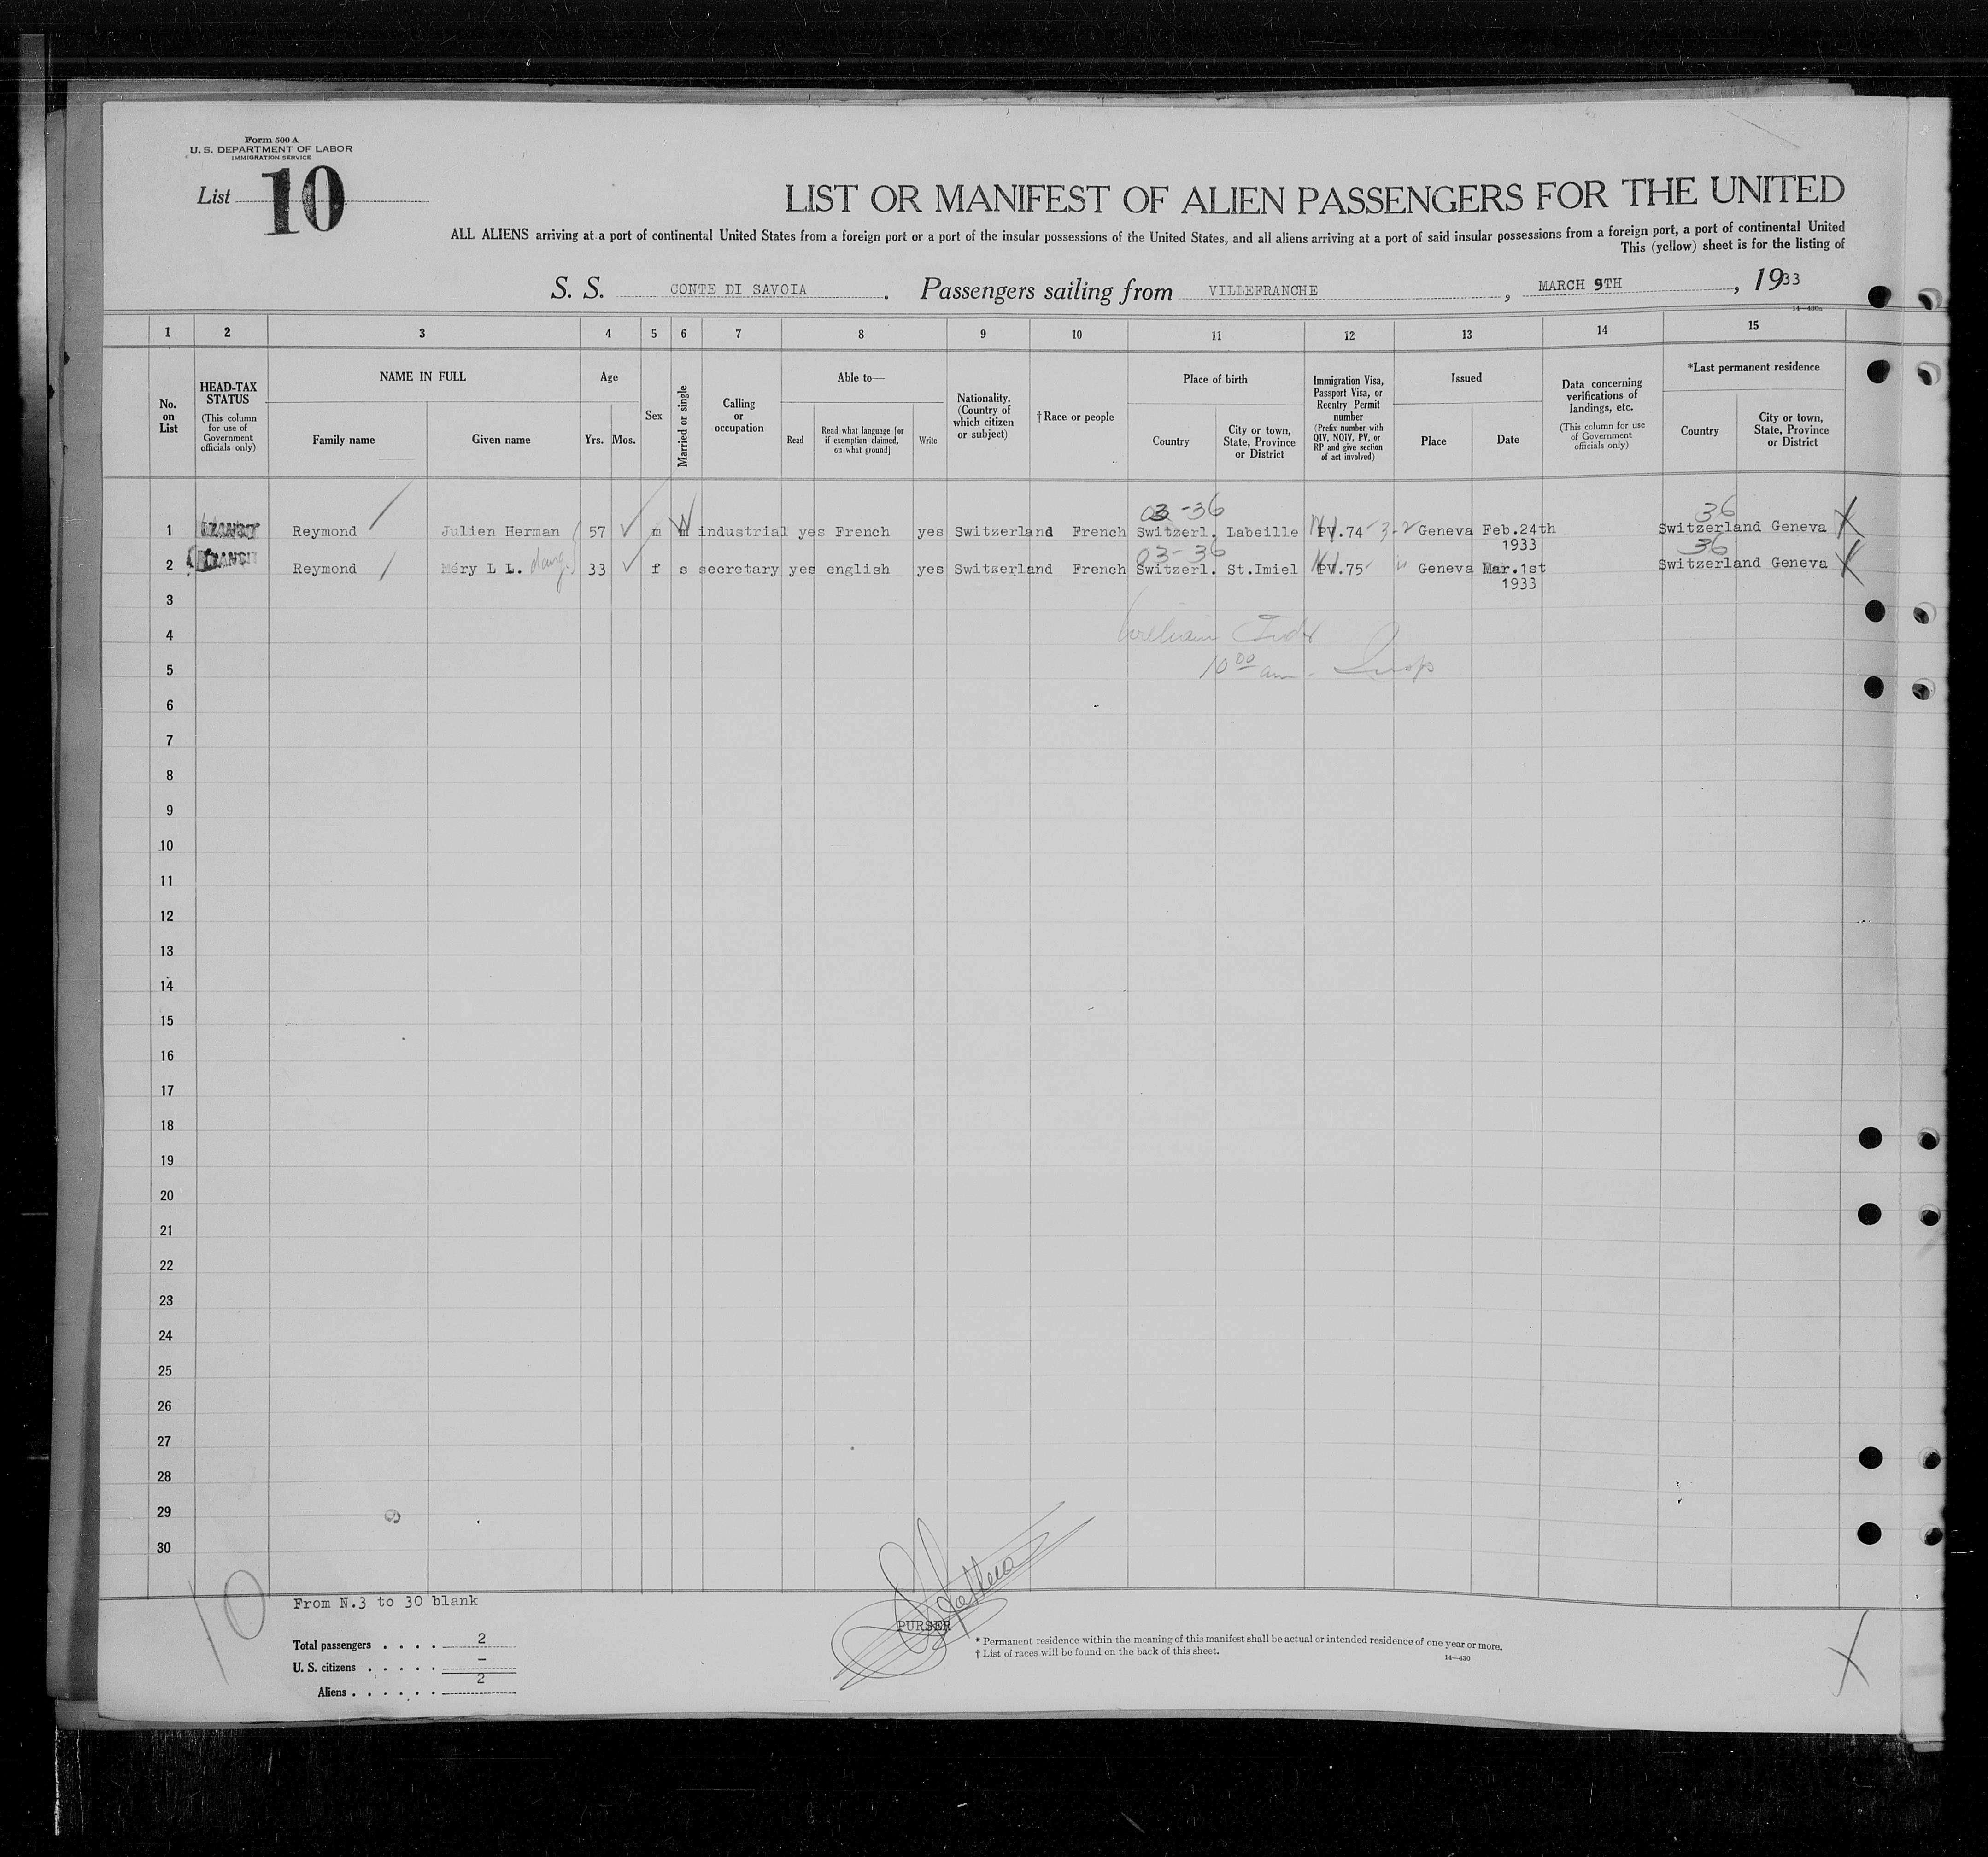 Form 500 A
U. S. DEPARTMENT OF LABOR
IMMIGRATION SERVICE
List 10
LIST OR MANIFEST OF ALIEN PASSENGERS FOR THE UNITED
ALL ALIENS arriving at a port of continental United States from a foreign port or a port of the insular possessions of the United States, and all aliens arriving at a port of said insular possessions from a foreign port, a port of continental United
This (yellow) sheet is for the listing of
S. S. CONTE DI SAVOIA. Passengers sailing from VILLEFRANCHE, MARCH 9TH, 1933
14—430a
1 2 3 4 5 6 7 8 9 10 11 12 13 14 15
No. on List
HEAD-TAX STATUS
(This column for use of Government officials only)
NAME IN FULL
Family name
Given name
Age
Yrs. Mos.
Sex
Married or single
Calling or occupation
Able to—
Read
Read what language [or if exemption claimed, on what ground]
Write
Nationality. (Country of which citizen or subject)
†Race or people
Place of birth
Country
City or town, State, Province or District
Immigration Visa, Passport Visa, or Reentry Permit number
(Prefix number with QIV, NQIV, PV, or RP and give section of act involved)
Issued
Place
Date
Data concerning verifications of landings, etc.
(This column for use of Government officials only)
*Last permanent residence
Country
City or town, State, Province or District
03-36 36
1 TRANSIT Reymond Julien Herman 57 m m industrial yes French yes Switzerland French Switzerl. Labeille PV.74 3-2 Geneva Feb.24th 1933 Switzerland Geneva
03-36 36
2 TRANSIT Reymond Méry L L. 33 f s secretary yes english yes Switzerland French Switzerl. St.Imiel PV.75 Geneva Mar.1st 1933 Switzerland Geneva
3
4
5 10 00 am
6
7
8
9
10
11
12
13
14
15
16
17
18
19
20
21
22
23
24
25
26
27
28
29
30
10
From N.3 to 30 blank
Total passengers . . . . 2
U. S. citizens . . . . . -
Aliens . . . . . . 2
PURSER
* Permanent residence within the meaning of this manifest shall be actual or intended residence of one year or more.
† List of races will be found on the back of this sheet.
14—430